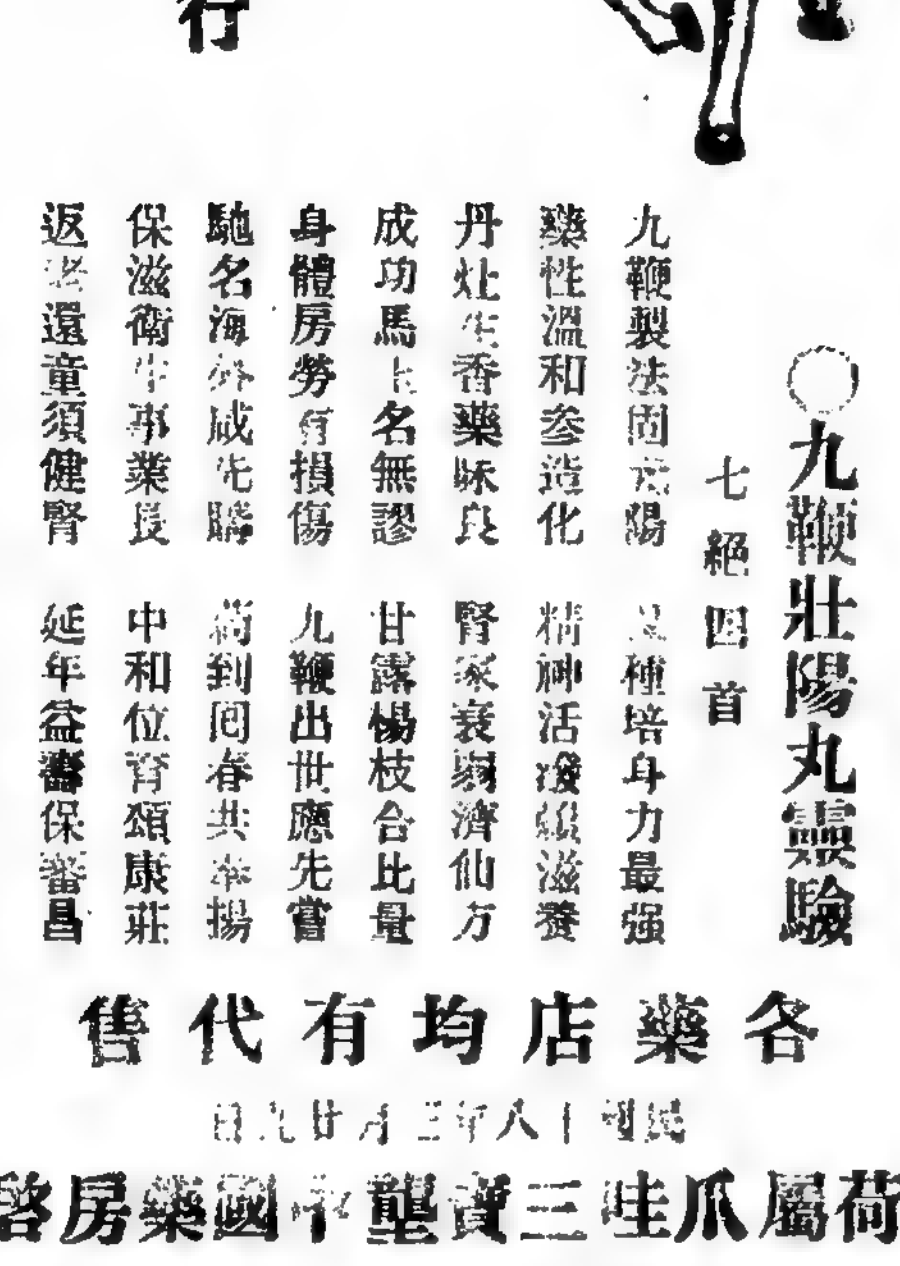 行
九鞭壯陽丸靈驗
七絕四首
九鞭製法固元陽 種培身力最强
藥性溫和參造化 精神活潑滋養
丹灶生香藥味良 腎家衰弱濟仙方
成功馬上名無謬 甘露楊枝合比量
身體房勞有損傷 九鞭出世應先嘗
馳名海外咸先購 荷到回春共奉揚
保滋衛生事業長 中和位育頌康莊
返老還童須健腎 延年益壽保蕃昌
各藥店均有代售
民國十八年三月廿九日
荷屬爪哇三寶壟中國藥房啓